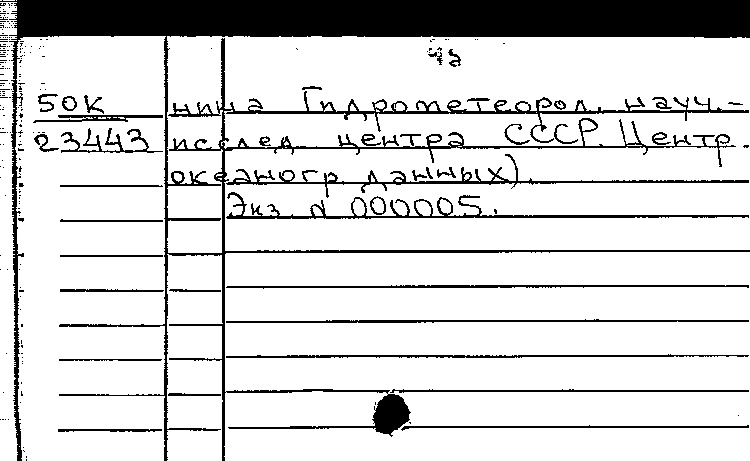 50К нина Гидрометеорол. науч.-
23443 исслед. центра СССР. Центр
океаногр. данных).
Экз. N 000005.